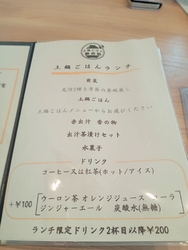 土鍋ごはんランチ
前菜
土鍋ごはん
土鍋ごはんメニューからお選びください
赤出汁 香の物
出汁茶漬けセット
水菓子
ドリンク
コーヒー又は紅茶(ホット/アイス)
+¥100
ウーロン茶 オレンジジュース コーラ
ジンジャーエール 炭酸水(無糖)
ランチ限定ドリンク2杯目以降¥200